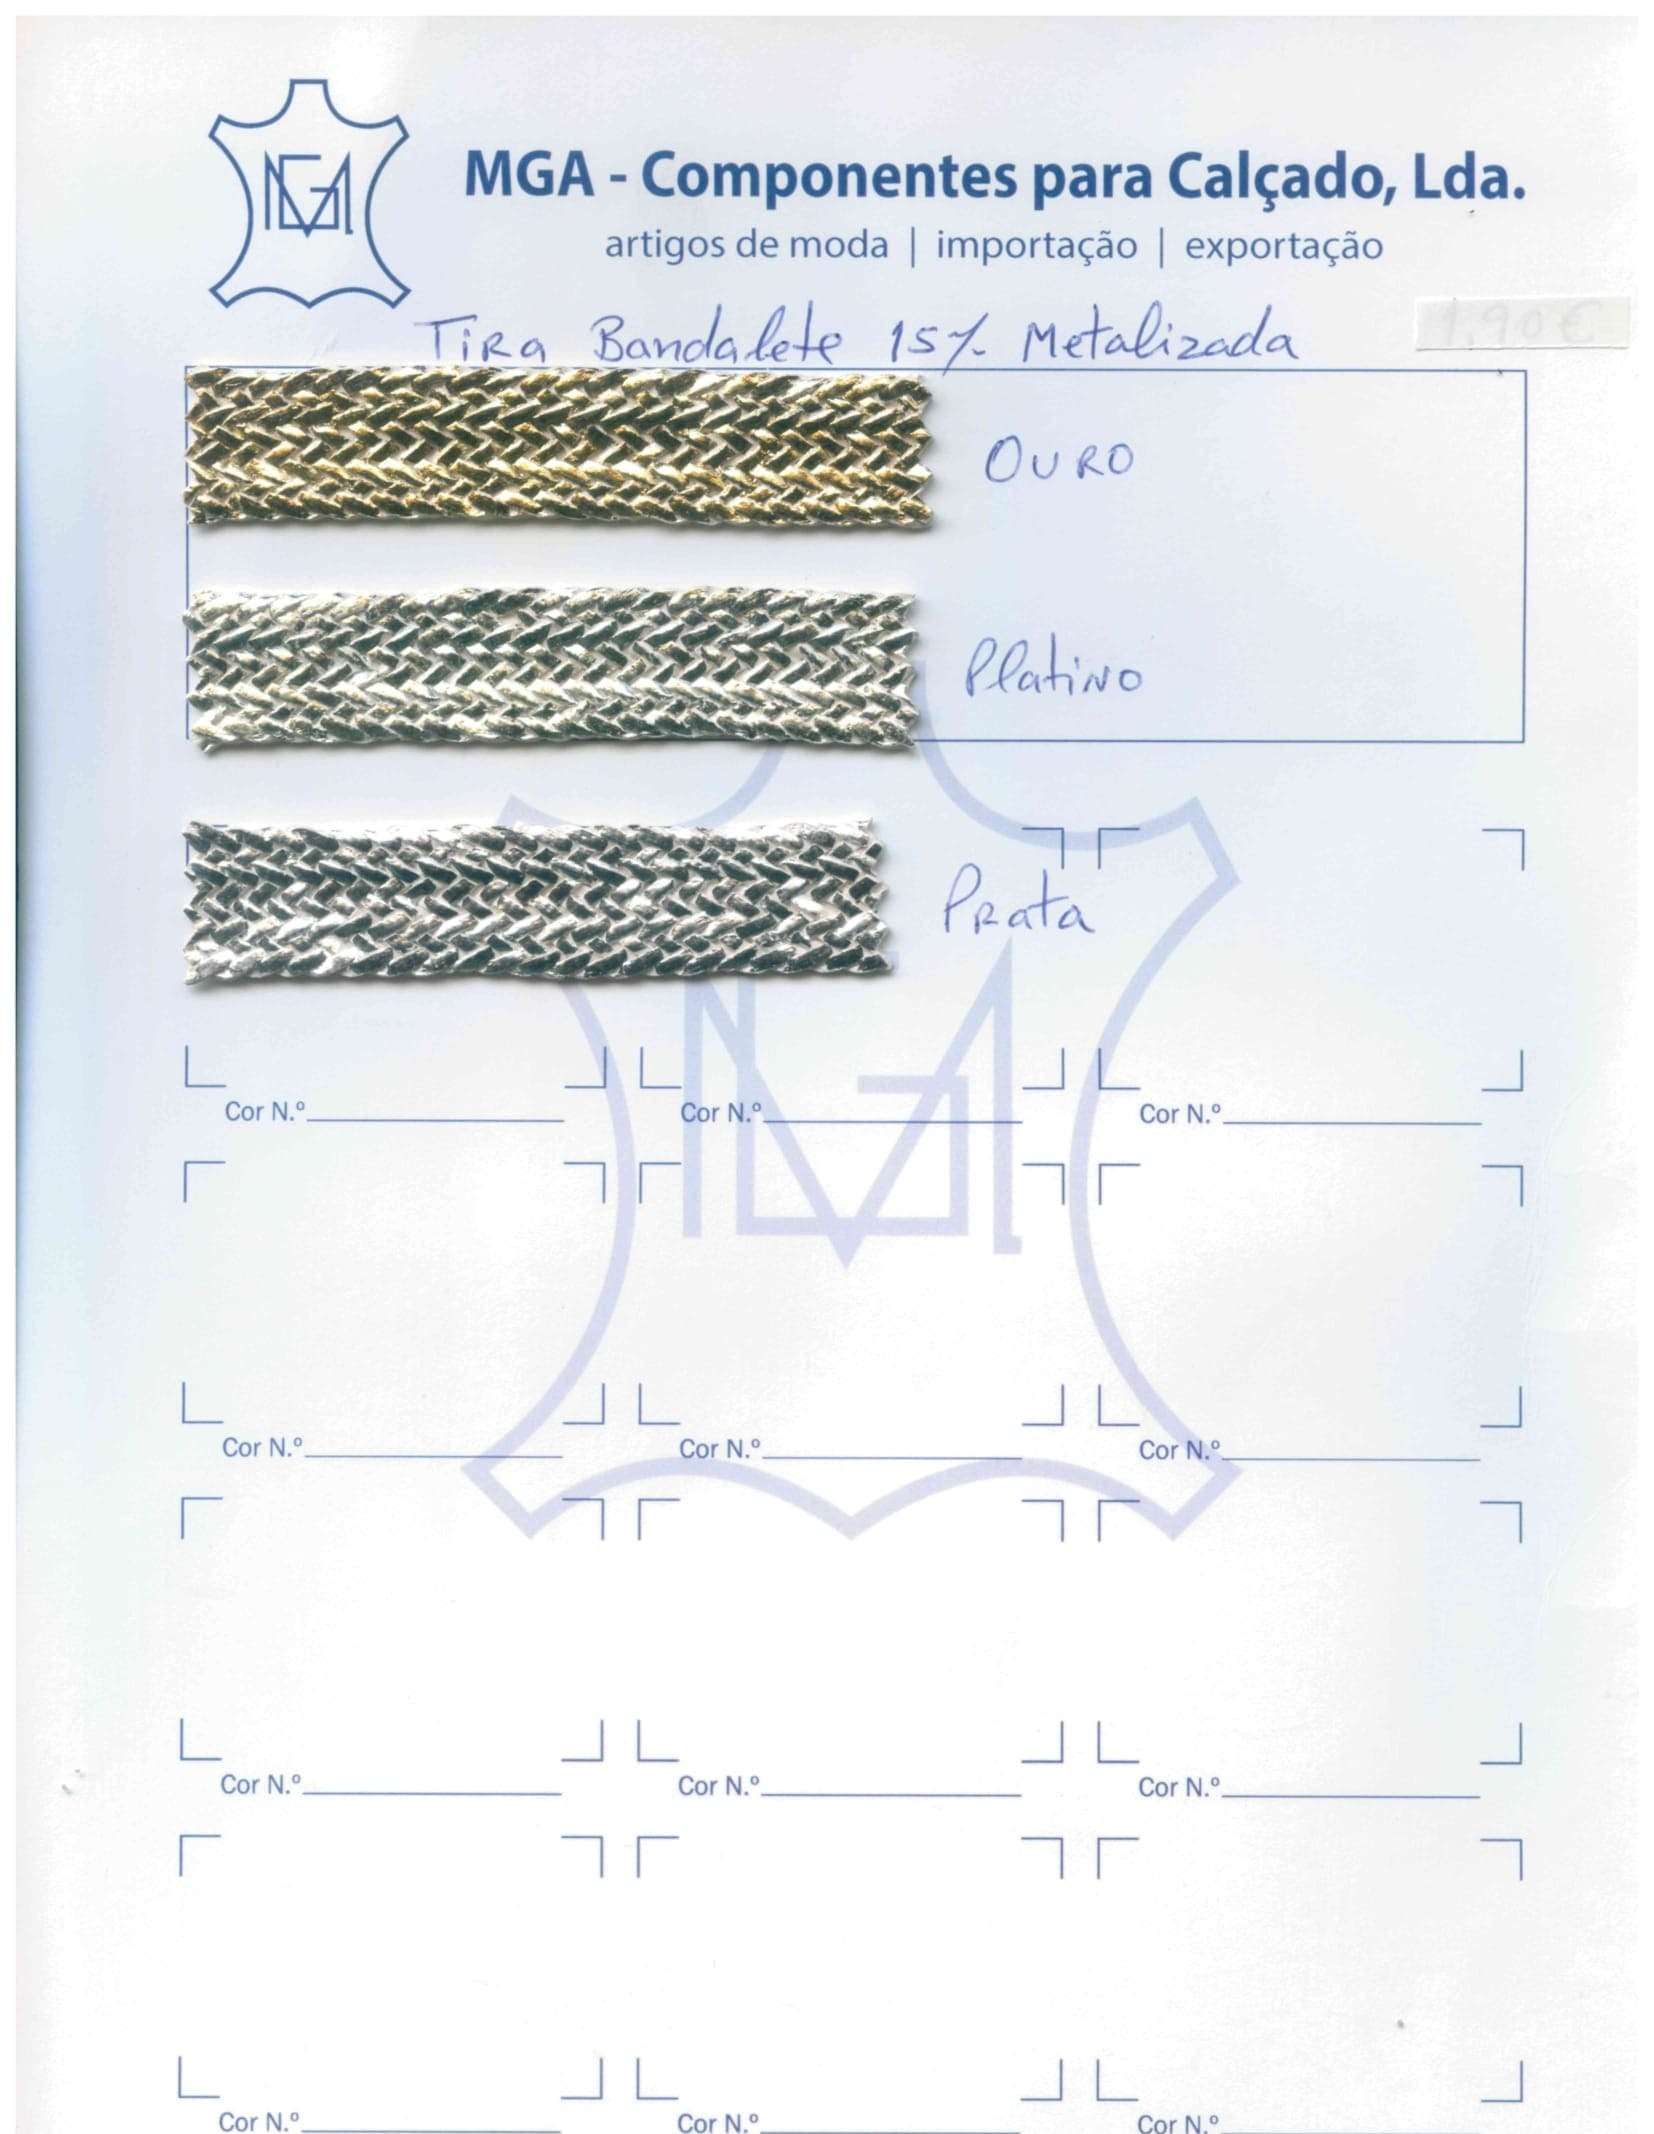 MGA
MGA - Componentes para Calçado, Lda.
artigos de moda | importação | exportação
1,90€
Tira Bandalete 15% Metalizada
OURO
Platino
Prata
MGA
Cor N.º Cor N.º Cor N.º
Cor N.º Cor N.º Cor N.º
Cor N.º Cor N.º Cor N.º
Cor N.º Cor N.º Cor N.º